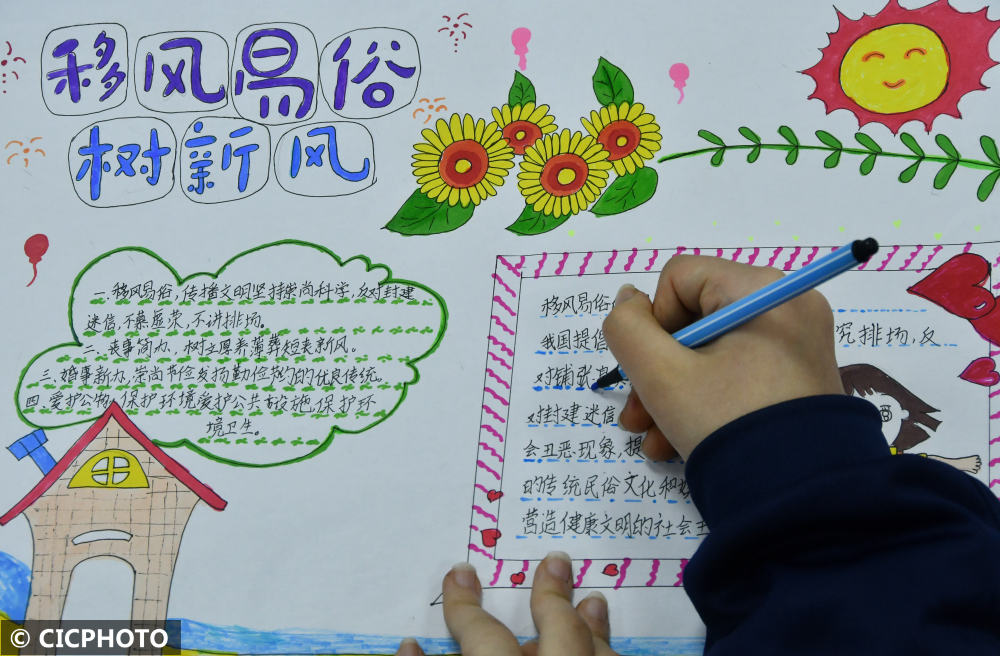 移风易俗
树新风
一.移风易俗,传播文明坚持崇尚科学,反对封建
迷信,不慕虚荣,不讲排场。
二.丧事简办,树立厚养薄葬短丧新风。
三.婚事新办,崇尚节俭发扬勤俭节约的优良传统。
四.爱护公物,保护环境爱护公共设施,保护环
境卫生。
移风易俗
我国提倡 究排场,反
对铺张
对封建迷信
会丑恶现象,提
的传统民俗文化和
营造健康文明的社会主
© CICPHOTO